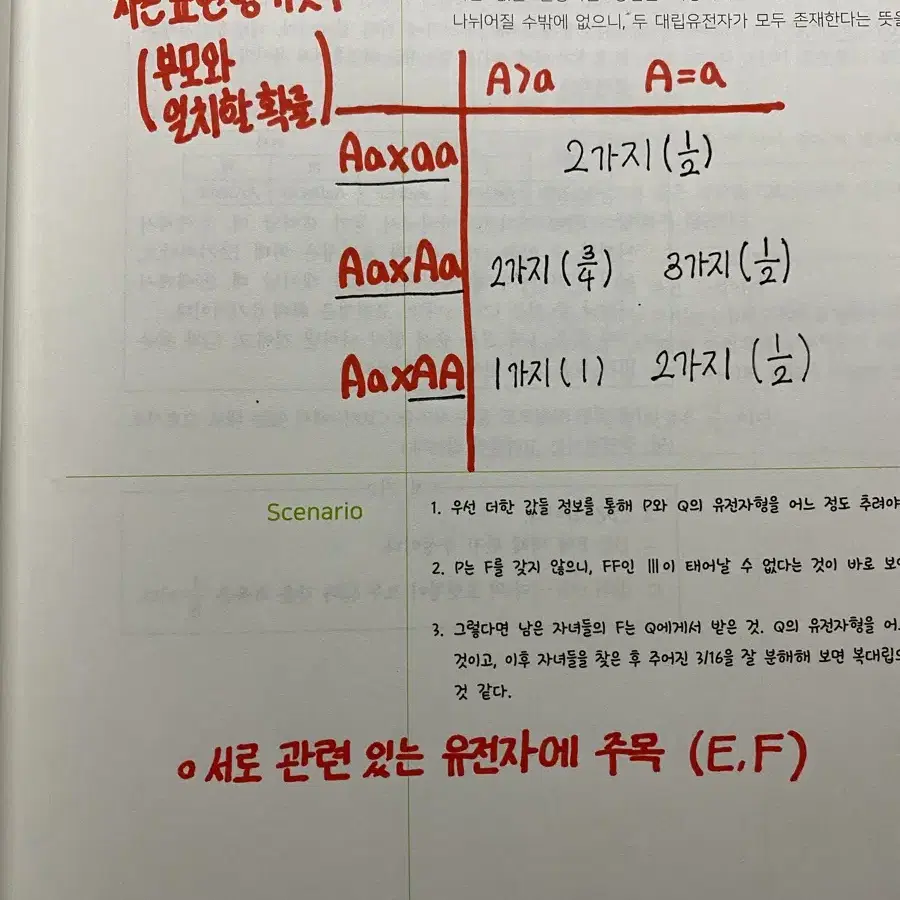 나뉘어질 수밖에 없으니, 두 대립유전자가 모두 존재한다는 뜻을
(부모와
일치할 확률)
A>a A=a
Aaxaa 2가지 (1/2)
AaxAa 2가지 (3/4) 3가지 (1/2)
AaxAA 1가지 (1) 2가지 (1/2)
Scenario
1. 우선 더한 값들 정보를 통해 P와 Q의 유전자형을 어느 정도 추려야
2. P는 F를 갖지 않으니, FF인 Ⅲ이 태어날 수 없다는 것이 바로 보
3. 그렇다면 남은 자녀들의 F는 Q에게서 받은 것. Q의 유전자형을 어
것이고, 이후 자녀들을 찾은 후 주어진 3/16을 잘 분해해 보면 복대립
것 같다.
o 서로 관련 있는 유전자에 주목 (E,F)